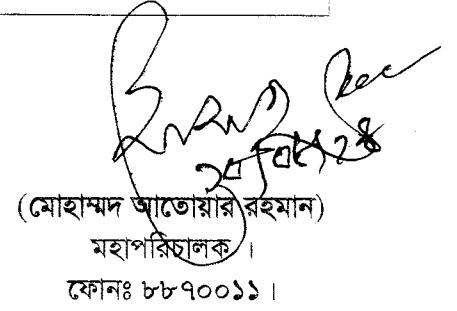 (মোহাম্মদ আতোয়ার রহমান)
মহাপরিচালক ।
ফোনঃ ৮৮৭০০১১ ।